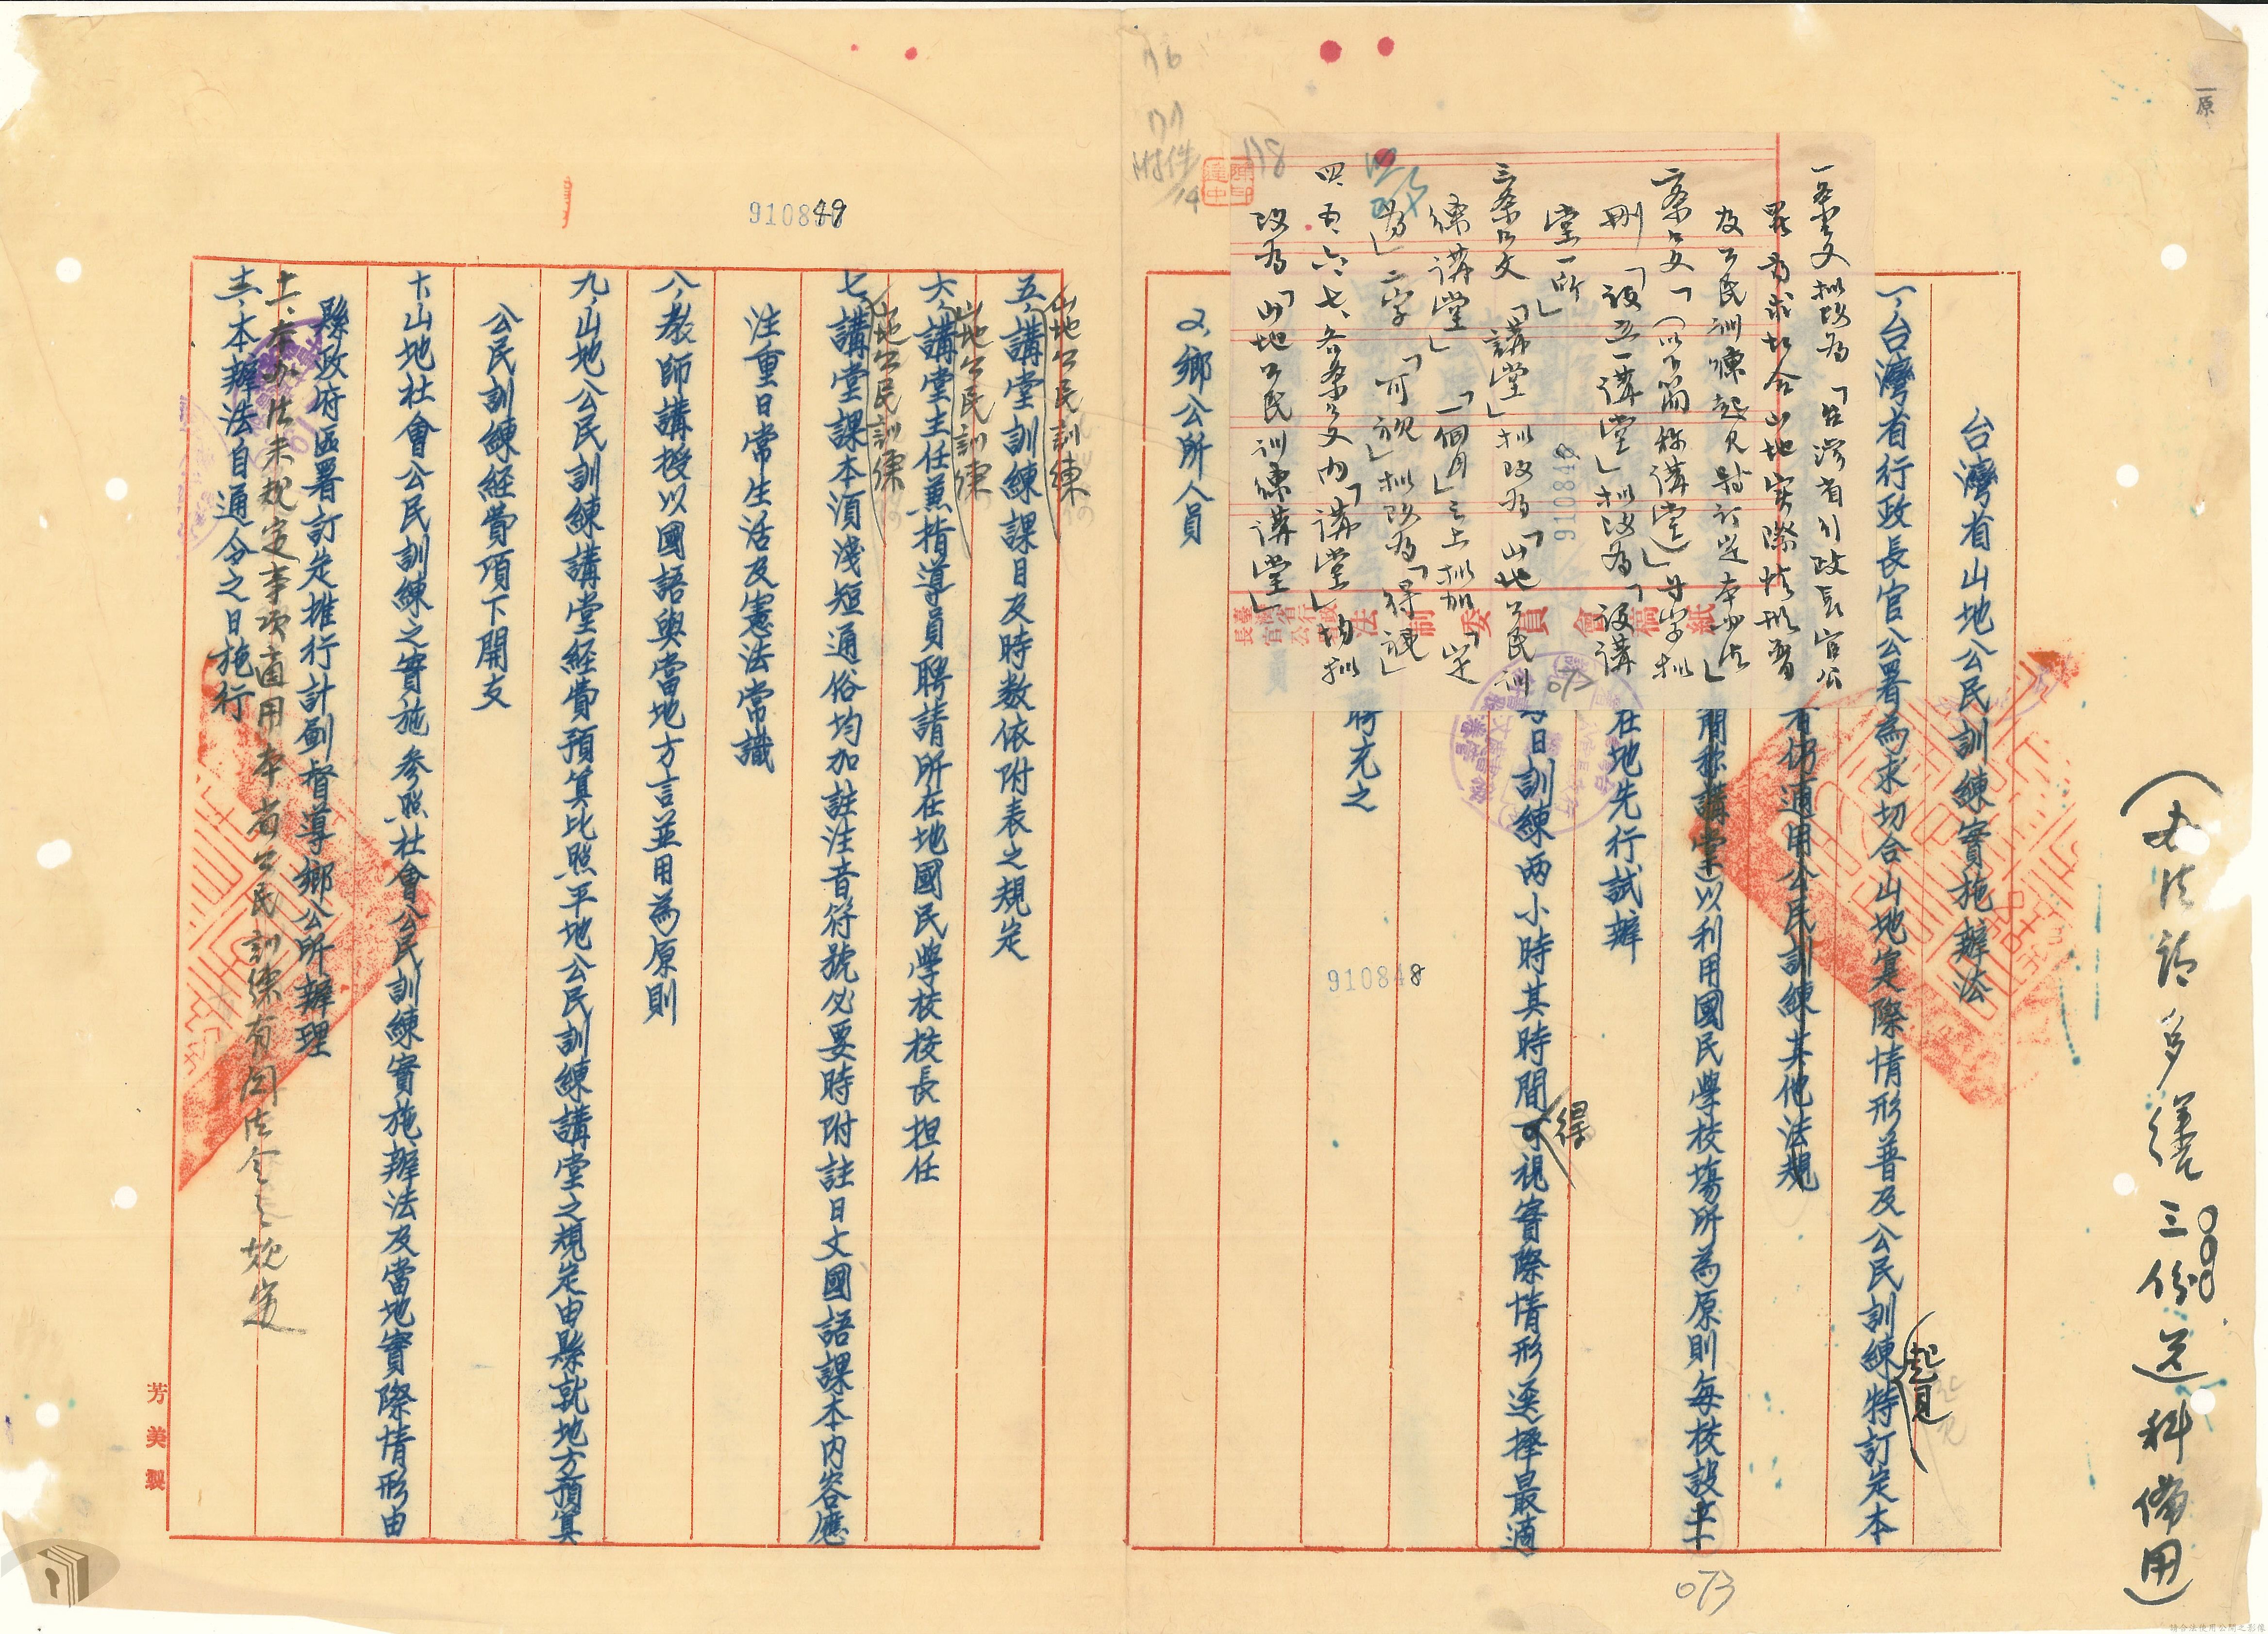 (办法請多繕三份送科備用)
原
台灣省山地公民訓練實施辦法
一、台灣省行政長官公署為求切合山地實際情形普及公民訓練特訂定本
起見
有仍適用公民訓練其他法規
簡称講堂以利用國民學校場所為原則每校設立一
在地先行試辦
日訓練兩小時其時間可視實際情形選擇最適
得
聘充之
2、鄉公所人員
一条条文拟改為「台灣省行政長官公
署為求切合山地实際情形普
及公民訓練起見特訂定本办法」
二条条文「(以下簡称講堂)」等字拟
刪「設立一講堂」拟改為「設講
堂一所」
三条条文「講堂」拟改為「山地公民訓
練講堂」「一個月」之上拟加「定
為」二字「可視」拟改為「得視」
四、五、六、七、各条条文內「講堂」均拟
改為「山地公民訓練講堂」
臺灣省行政長官公署法制委員會稿紙
118
附件
14
910848
910848
073
910849
五、講堂訓練課目及時数依附表之規定
山地公民訓練
六、講堂主任兼指導員聘請所在地國民學校校長担任
山地公民訓練
七、講堂課本須淺短通俗均加註注音符號必要時附註日文國語課本內容應
山地公民訓練
注重日常生活及憲法常識
八、教師講授以國語與當地方言並用為原則
九、山地公民訓練講堂經費預算比照平地公民訓練講堂之規定由縣就地方預算
公民訓練經費項下開支
十、山地社會公民訓練之實施參照社會公民訓練實施辦法及當地實際情形由
縣政府區署訂定推行計劃督導鄉公所辦理
十一、本办法未規定事項適用本省公民訓練有関法令之規定
十二、本辦法自通令之日施行
芳美製